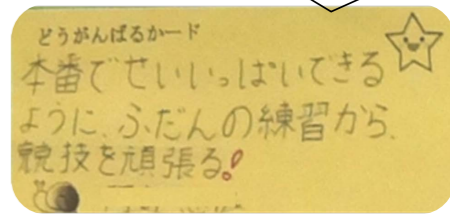 どうがんばるカード
本番でせいいっぱいできる
ように、ふだんの練習から、
競技を頑張る!